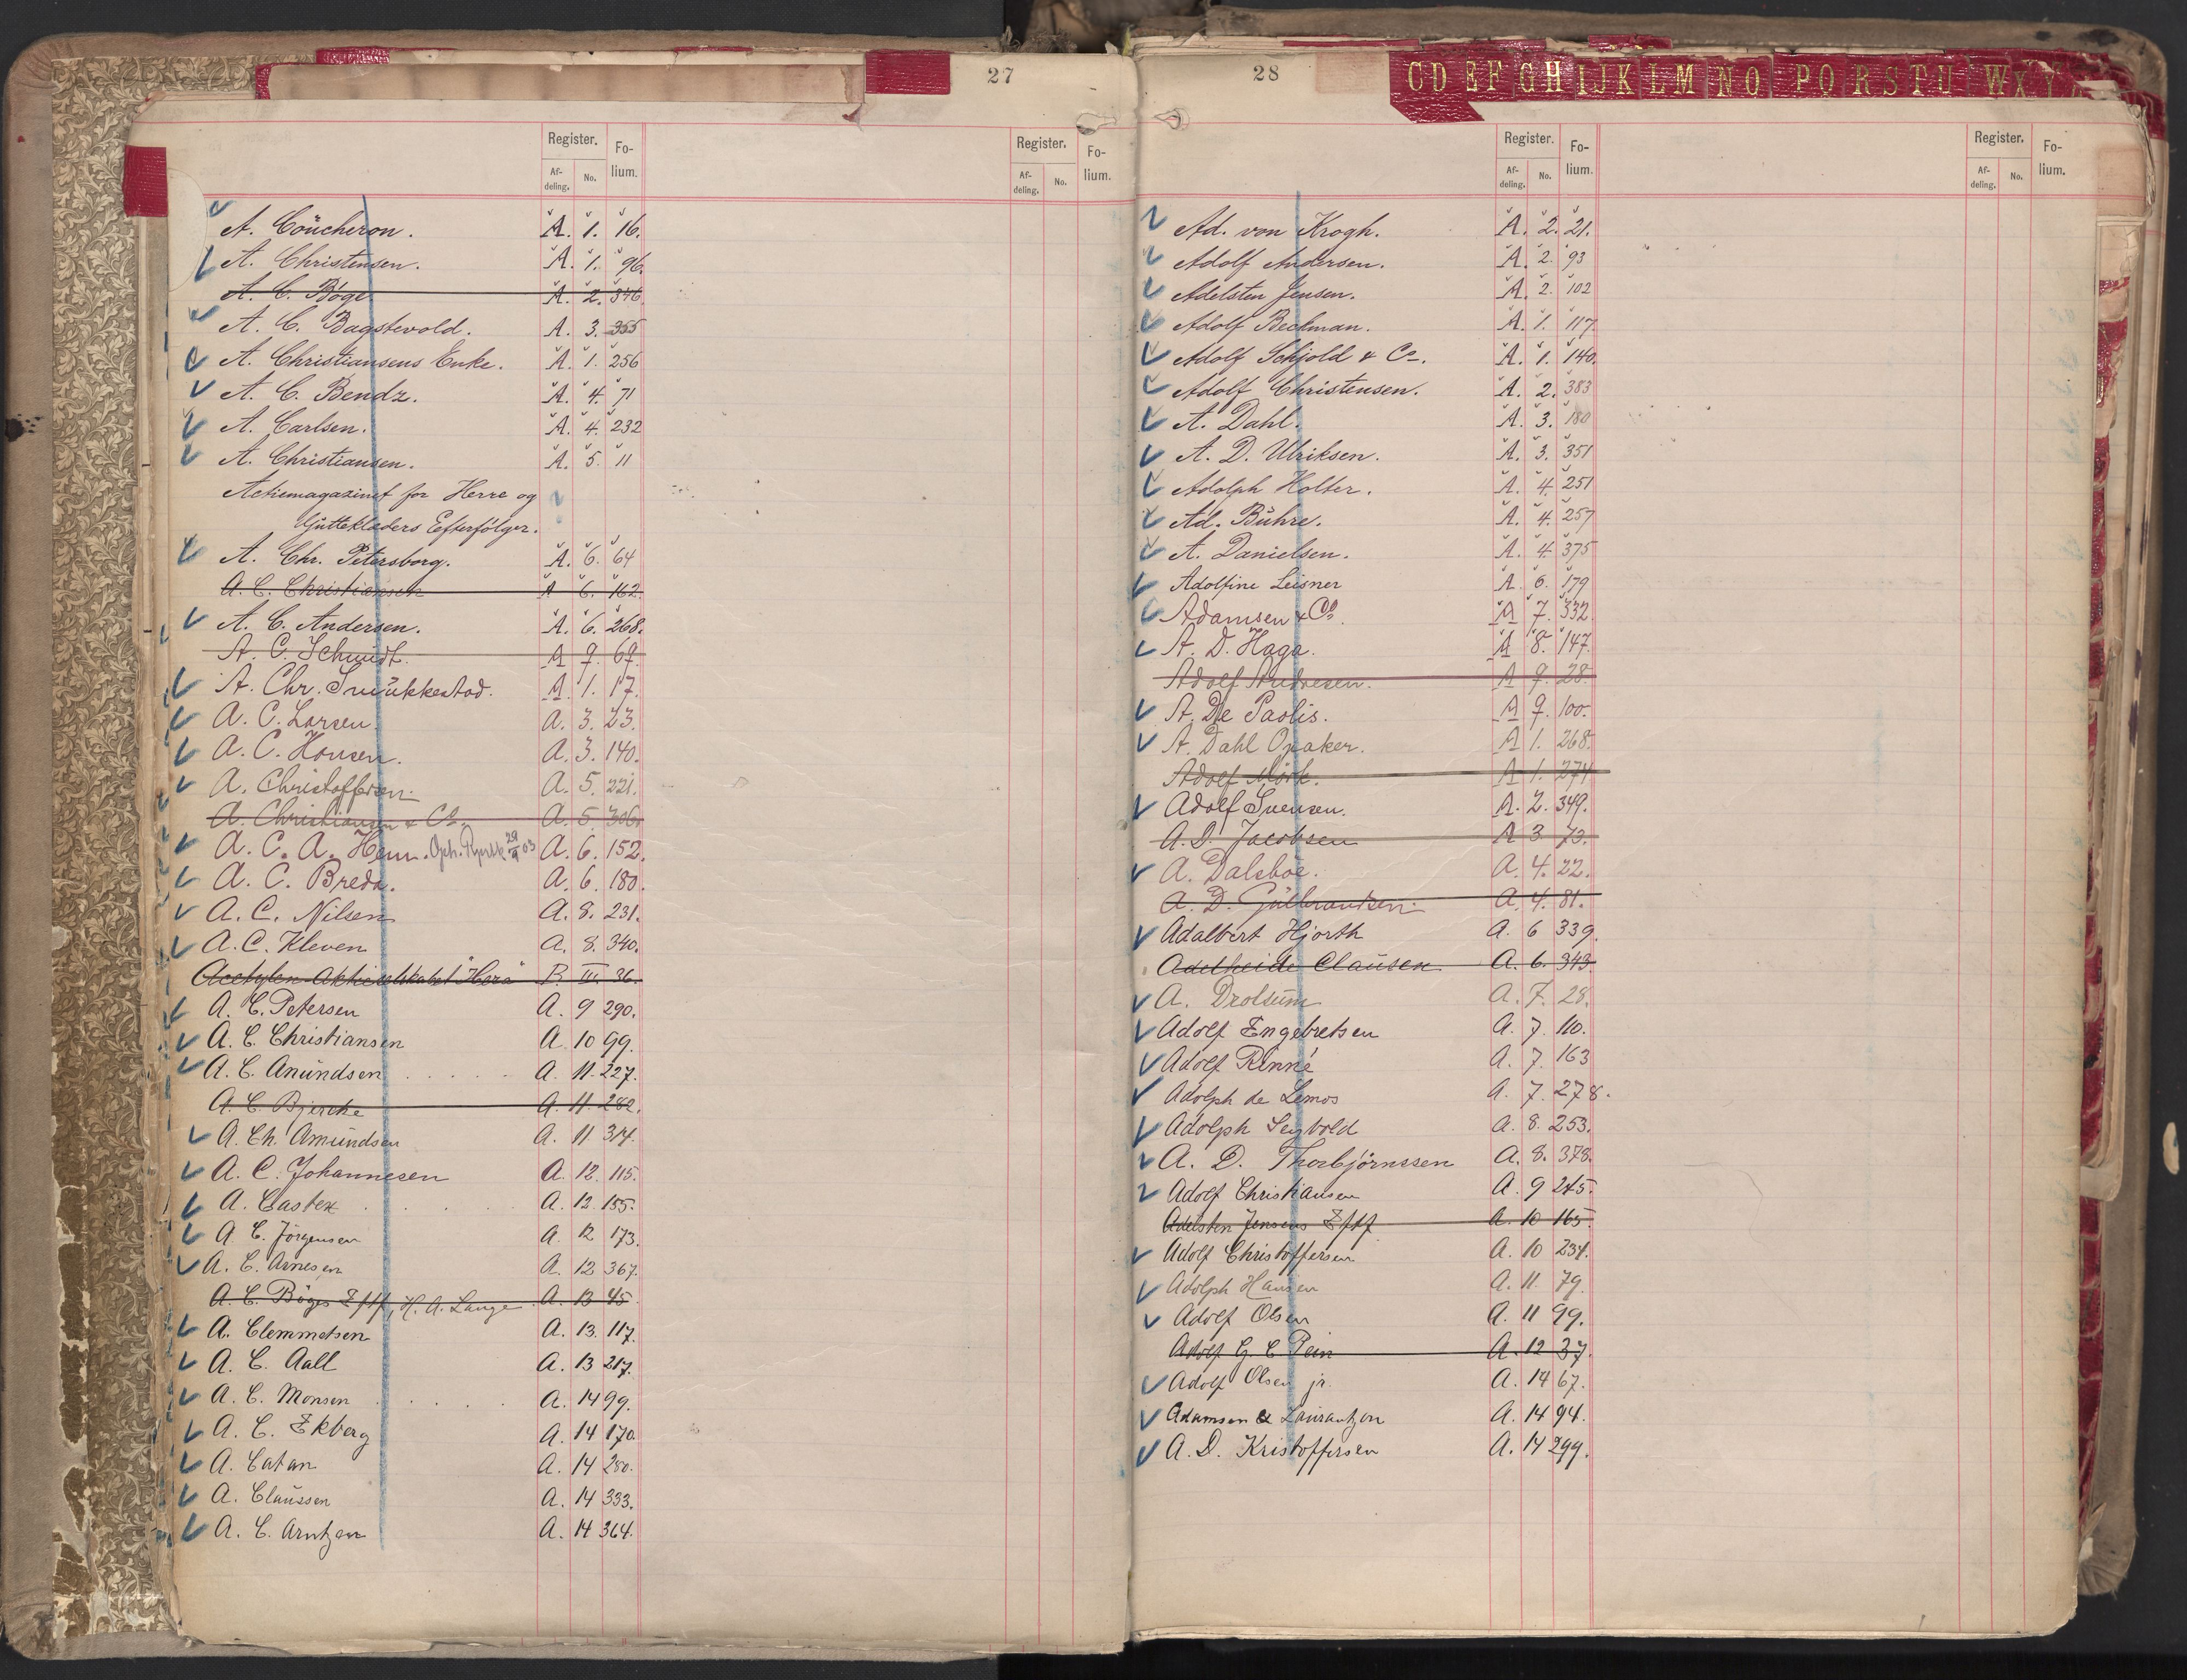 27
Register. Fo-
Af- No. lium.
deling.
Register. Fo-
Af- No. lium.
deling.
A. Coücheron. A. 1. 16.
A. Christensen. A. 1. 96.
A. C. Böge A. 2. 346.
A. C. Bagstevold. A. 3. 355
A. Christiansens Enke. A. 1. 256
A. C. Bendz. A. 4. 71
A. Carlsen. A. 4. 232
A. Christiansen. A. 5. 11
Actiemagazinet for Herre og
Gutteklæders Efterfölger.
A. Chr. Petersborg. A. 6. 64
A. C. Christiansen A 6. 162.
A. C. Andersen. A. 6. 268.
A. C. Schmidt. A 9. 69.
A. Chr. Smükkestad. A. 1. 17.
A. C. Larsen. A. 3. 23.
A. C. Hansen. A. 3. 140.
A. Christoffersen. A. 5. 221.
A. Christiansen & Co. A. 5. 306.
A. C. A. Henn. 29/9 03 A. 6. 152.
A. C. Breda. A. 6. 180.
A. C. Nilsen A. 8. 231.
A. C. Kleven A. 8. 340.
Acetylen-Aktieselskabet "Hera" B. III. 36.
A. C. Petersen A. 9 290.
A. C. Christiansen A. 10 99.
A. C. Anündsen A. 11. 227.
A. C. Bjercke A. 11. 282.
A. Ch. Amündsen A. 11. 314.
A. C. Johannesen A. 12. 115.
A. Castex A. 12. 155.
A C. Jörgensen A. 12 173.
A. C. Arnesen A. 12 367.
A. C. Böges Eftf, H. A. Lange A. 13 45
A. Clemmetsen A. 13. 117.
A. C. Aall A. 13 217.
A. C. Monsen A. 14 99.
A. C. Ekberg A. 14 170.
A. Catan A. 14 280.
A. Claüssen A. 14 333.
A. C. Arntzen A. 14 364.
28
C D E F G H I J K L M N O P Q R S T U W X Y
Register. Fo-
Af- No. lium.
deling.
Register. Fo-
Af- No. lium.
deling.
Ad. von Krogh. A. 2. 21.
Adolf Andersen. A. 2. 93
Adelsten Jensen. A. 2. 102
Adolf Beckman. A. 1. 117
Adolf Schjold & Co. A. 1. 140.
Adolf Christensen. A. 2. 383
A. Dahl. A. 3. 180
A. D. Ulriksen. A. 3. 351
Adolph Holter. A. 4. 251
Ad. Bühre. A. 4. 257
A. Danielsen. A. 4. 375
Adolfine Leisner A. 6. 179
Adamsen & Co. A 7. 332
A. D. Haga. A 8. 147.
Adolf Andresen. A 9. 28.
A. De Paolis. A 9. 100.
A. Dahl Opaker. A 1. 268.
Adolf Mörk. A 1. 274
Adolf Svensen. A. 2. 349.
A. D. Jacobsen A 3. 73.
A. Dalsböe. A. 4. 22.
A. D. Gülbrandsen. A. 4. 81.
Adalbert Hjorth A. 6 339.
Adelheide Claüsen A. 6. 343
A. Drolsüm A. 7. 28.
Adolf Engebretsen A. 7. 110.
Adolf Rinné A. 7. 163
Adolph de Lemos A. 7. 278.
Adolph Seybold A. 8. 253.
A. D. Thorbjörnssen A. 8. 378.
Adolf Christiansen A. 9 245.
Adelsten Jensens Eftf A. 10 165
Adolf Christoffersen A. 10 234.
Adolph Hansen A. 11. 79.
Adolf Olsen A. 11 99.
Adolf G. C. Pein A. 12 37.
Adolf Olsen jr. A. 14 67.
Adamsen & Laurantzon A. 14 94.
A. D. Kristoffersen A. 14 299.